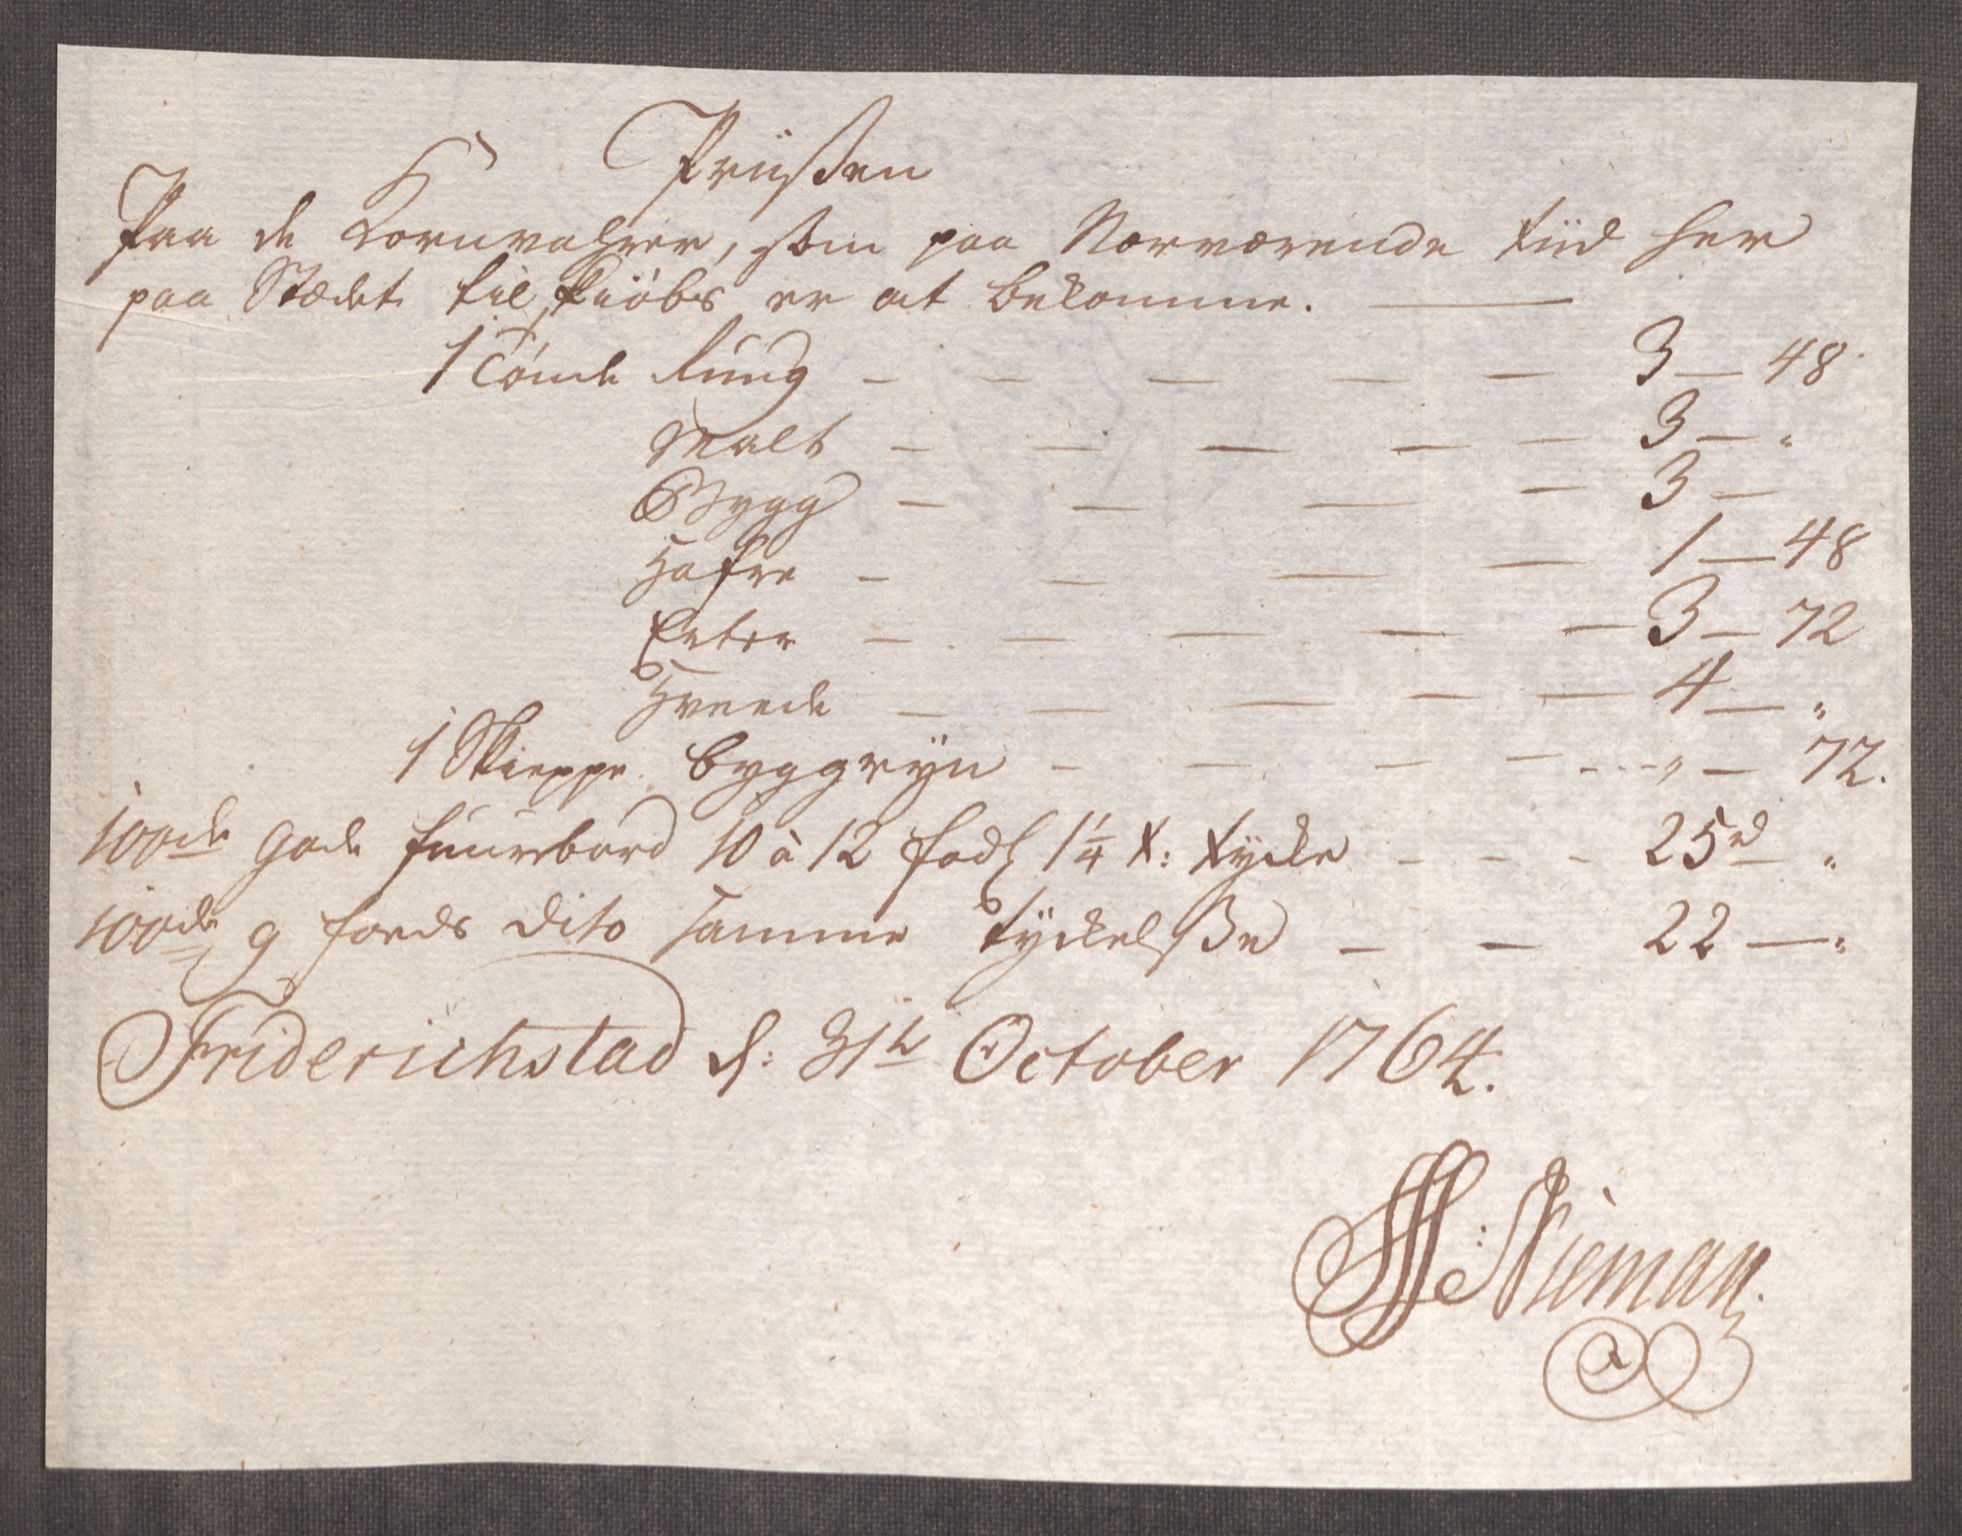 Priisen
Paa de Kornvahrer, som paa Nærværende tiid her
paa Stædet til Kiöbs er at bekomme.
1 Tönde Rung — — — — — 3 — 48
Malt — — — — — 3 — "
Bygg — — — — 3 —
Hafre — — — — 1 — 48
Erter — — — — — 3 — 72
Hveede — — — — — 4 — "
1 Skieppe byggryn — — — — " — 72.
100de gode fuurebord 10 à 12 fods 1¼ t: tycke - - - 25 rd "
100de 9 foeds dito samme tyckelsse — — 22 — "
Friderichstad d: 31te October 1764.
Nieman